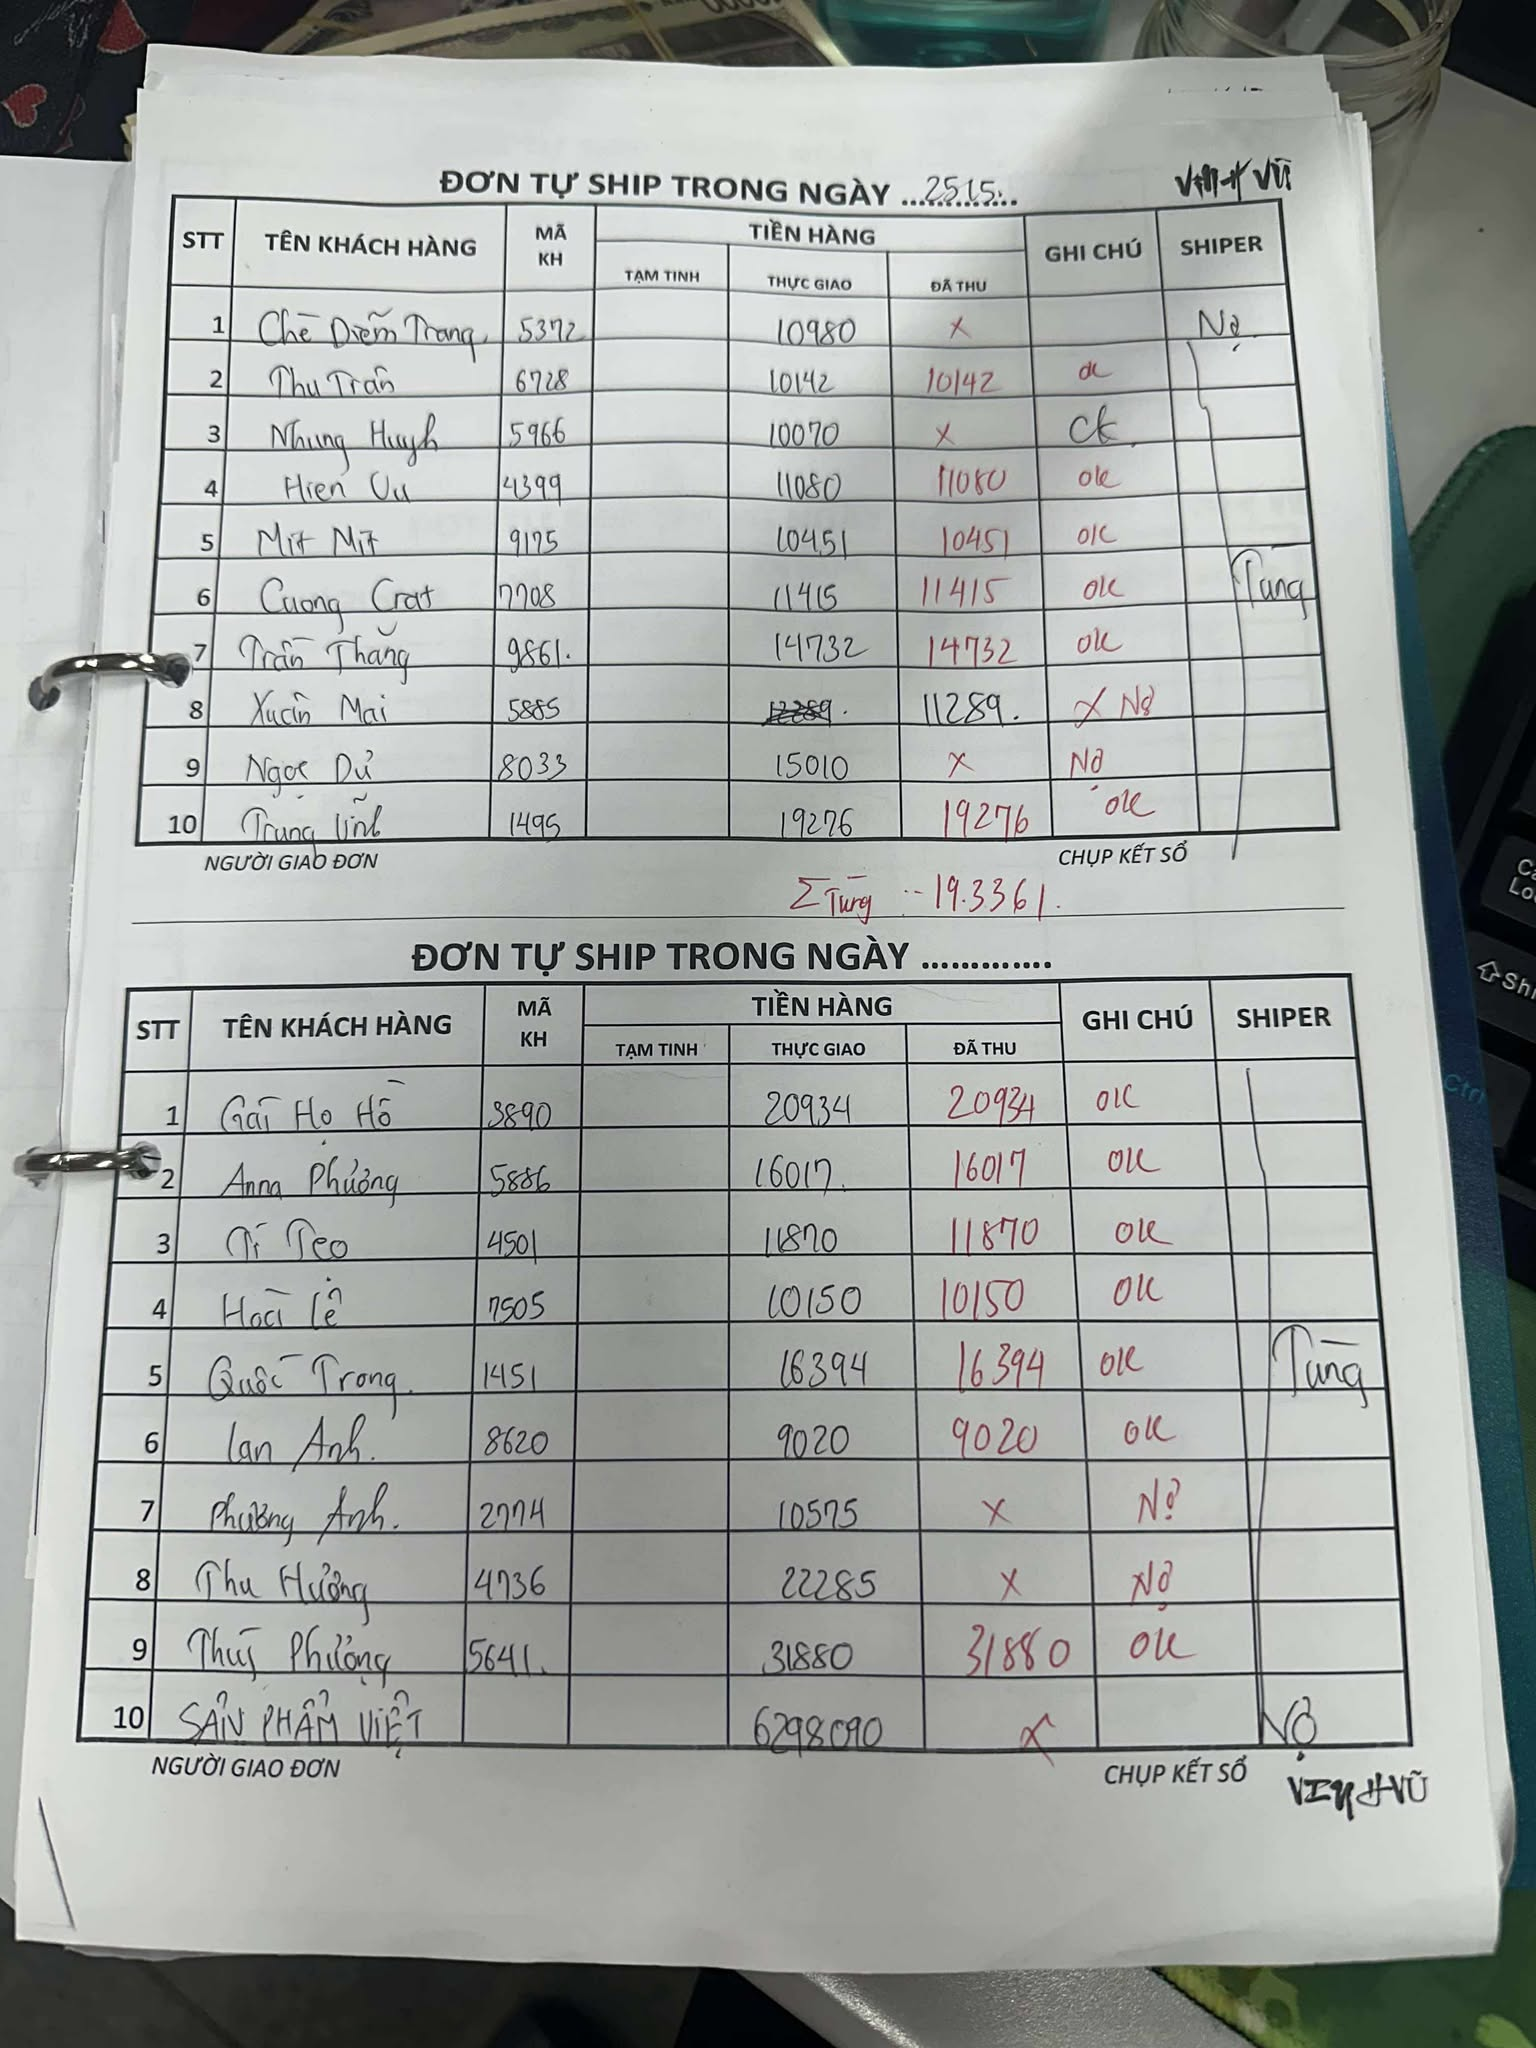 ĐƠN TỰ SHIP TRONG NGÀY ...25/5...
VŨ
STT TÊN KHÁCH HÀNG MÃ KH TIỀN HÀNG GHI CHÚ SHIPER
TẠM TINH THỰC GIAO ĐÃ THU
1 Chè Diễm Trang 5372 10980 x Nợ
2 Thu Trần 6728 10142 10142 ok
3 Nhung Huỳh 5966 10070 x CK
4 Hien Vu 4399 11080 11080 ok
5 Mít Nít 9175 10451 10451 ok
6 Cuong Crat 7708 11415 11415 ok Tùng
7 Trần Thăng 9861. 14732 14732 ok
8 Xuân Mai 5885 11289. x Nợ
9 Ngọc Dử 8033 15010 x Nợ
10 Trung lĩnh 1495 19276 19276 ok
NGƯỜI GIAO ĐƠN CHỤP KẾT SỔ
Σ Tùng : 19.3361.
ĐƠN TỰ SHIP TRONG NGÀY .............
STT TÊN KHÁCH HÀNG MÃ KH TIỀN HÀNG GHI CHÚ SHIPER
TẠM TINH THỰC GIAO ĐÃ THU
1 Gái Họ Hồ 3890 20934 20934 OK
2 Anna Phương 5886 16017. 16017 OK
3 Tí Teo 4501 11870 11870 OK
4 Hoài Lệ 7505 10150 10150 OK
5 Quốc Trong. 1451 16394 16394 OK Tùng
6 Lan Anh. 8620 9020 9020 OK
7 Phương Anh. 2774 10575 x Nợ
8 Thu Hường 4736 22285 x Nợ
9 Thuý Phượng 5641. 31880 31880 OK
10 SẢN PHẨM VIỆT 6298090 x NỢ
NGƯỜI GIAO ĐƠN CHỤP KẾT SỔ
VINH VŨ